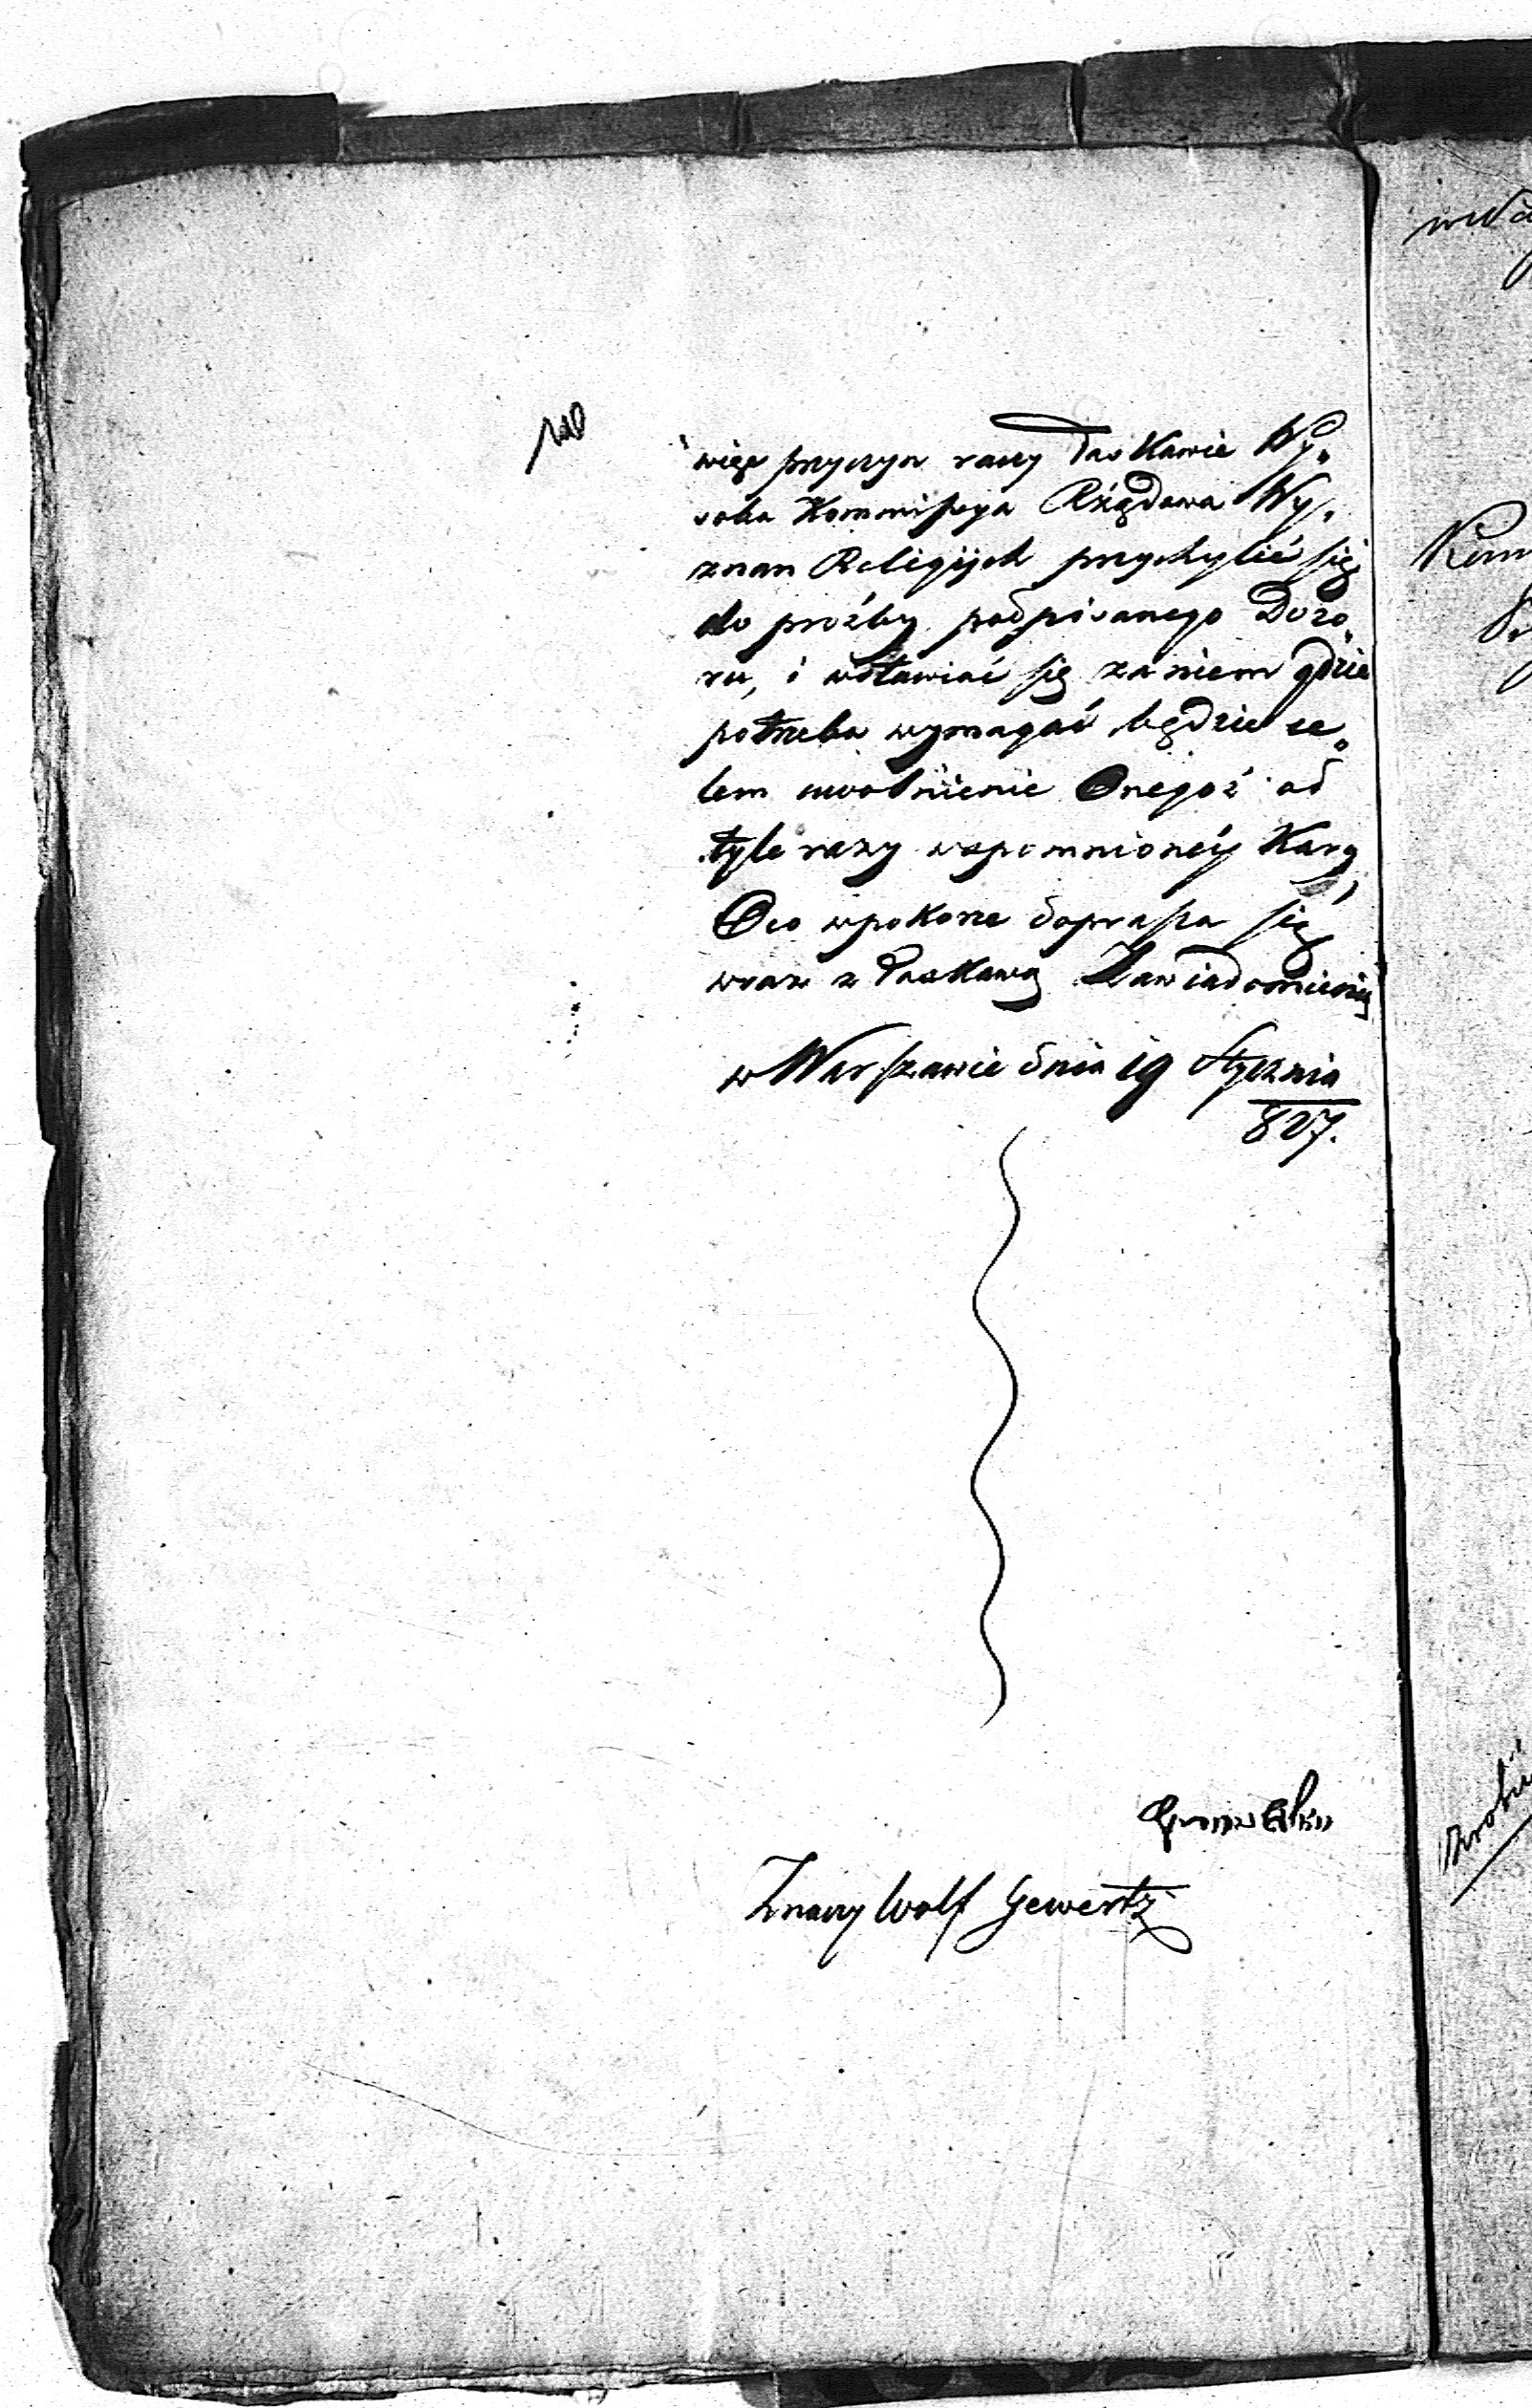 więc przyczyn raczy Łaskawie Wy„
soka Kommissya Rządowa Wy„
znan Religijych przychylić się
do prośby podpisanego Dozo„
ru, i wstawiać się za niem gdzie
potrzeba wymagać będzie ce„
lem uwolnienie Onegoż od
tyle razy wspomnionéy Kary,
Oco wpokorze doprasza się
wraz z Łaskawą Zawiadomienią
w Warszawie dnia 19 Stycznia
827.
Ignacy Wolf Gewertz